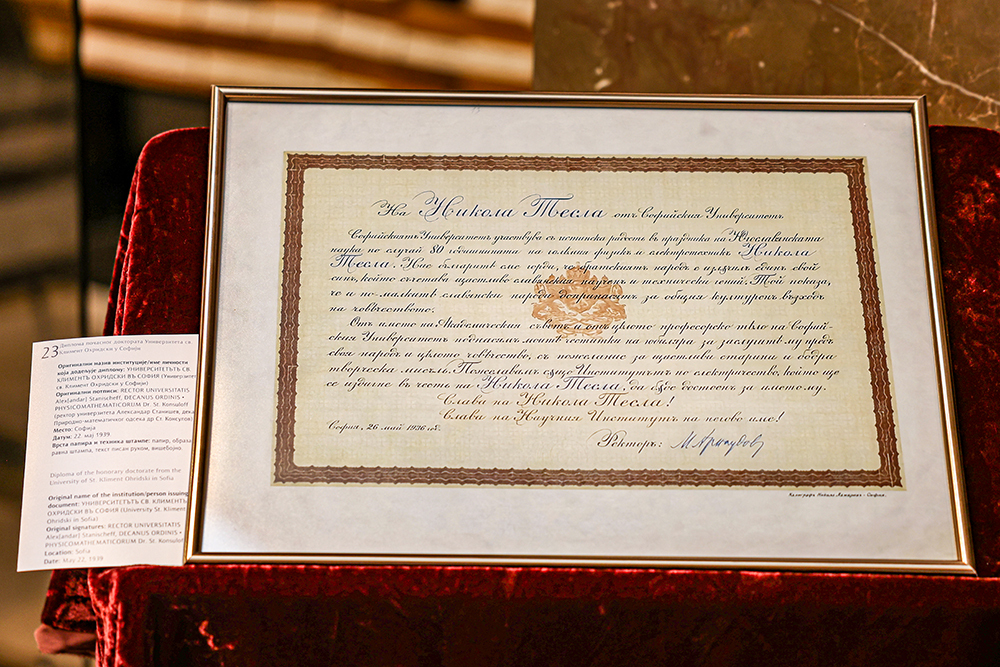 На Никола Тесла отъ Софийския Университетъ
Софийскиятъ Университетъ участвува съ истинска радость въ праздника на Югославянската
наука по случай 80 годишнината на големия физик и електротехник Никола
Тесла. Ние българитѣ сме горди, че братскиятъ народъ е излѫчилъ единъ свой
синъ, който съчетава щастливо славянския наученъ и технически гений. Той показа,
че и по-малкитѣ славянски народи допринасятъ за общия културенъ възходъ
на човѣчеството.
Отъ името на Академическия съветъ и отъ цѣлото професорско тѣло на Софий-
ския Университетъ поднасям моитѣ честитки на юбиляра за заслугитѣ му предъ
своя народъ и цѣлото човѣчество, съ пожелание за щастлива старина и бодра
творческа мисъль. Пожелавамъ сѫщо Институтътъ по електричество, който ще
се издигне въ честь на Никола Тесла, да бѫде достоенъ за името му.
Слава на Никола Тесла!
Слава на Научния Институтъ на негово име!
София, 26 май 1936 год.
Ректоръ:
Калиграфъ София.
23 Диплома почасног доктората Универзитета св.
Климент Охридски у Софији
Оригинални назив институције/име личности
која додељује диплому: УНИВЕРСИТЕТЪТЪ СВ.
КЛИМЕНТЪ ОХРИДСКИ ВЪ СОФИЯ (Универзитет
св. Климент Охридски у Софији)
Оригинални потписи: RECTOR UNIVERSITATIS
Alex[andar] Stanischeff, DECANUS ORDINIS •
PHYSICOMATHEMATICORUM Dr. St. Konsuloff
(ректор универзитета Александар Станишев, дека
Природно-математичког одсека др Ст. Консулов)
Место: Софија
Датум: 22. мај 1939
Врста папира и техника штампе: папир, обраха
равна штампа, текст писан руком, вишебојно
Diploma of the honorary doctorate from the
University of St. Kliment Ohridski in Sofia
Original name of the institution/person issuing
document: УНИВЕРСИТЕТЪТЪ СВ. КЛИМЕНТЪ
ОХРИДСКИ ВЪ СОФИЯ (University St. Kliment
Ohridski in Sofia)
Original signatures: RECTOR UNIVERSITATIS
Alex[andar] Stanischeff, DECANUS ORDINIS •
PHYSICOMATHEMATICORUM Dr. St. Konsuloff
Location: Sofia
Date: May 22, 1939